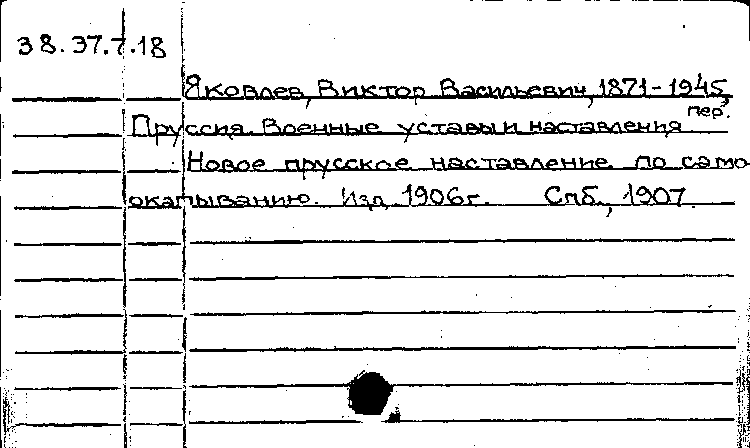 38.37.7.18
Яковлев, Виктор Васильевич, 1871-1945,
пер.
Пруссия. Военные уставы и наставления
Новое прусское наставление по само
окапыванию. Изд. 1906г. Спб., 1907.